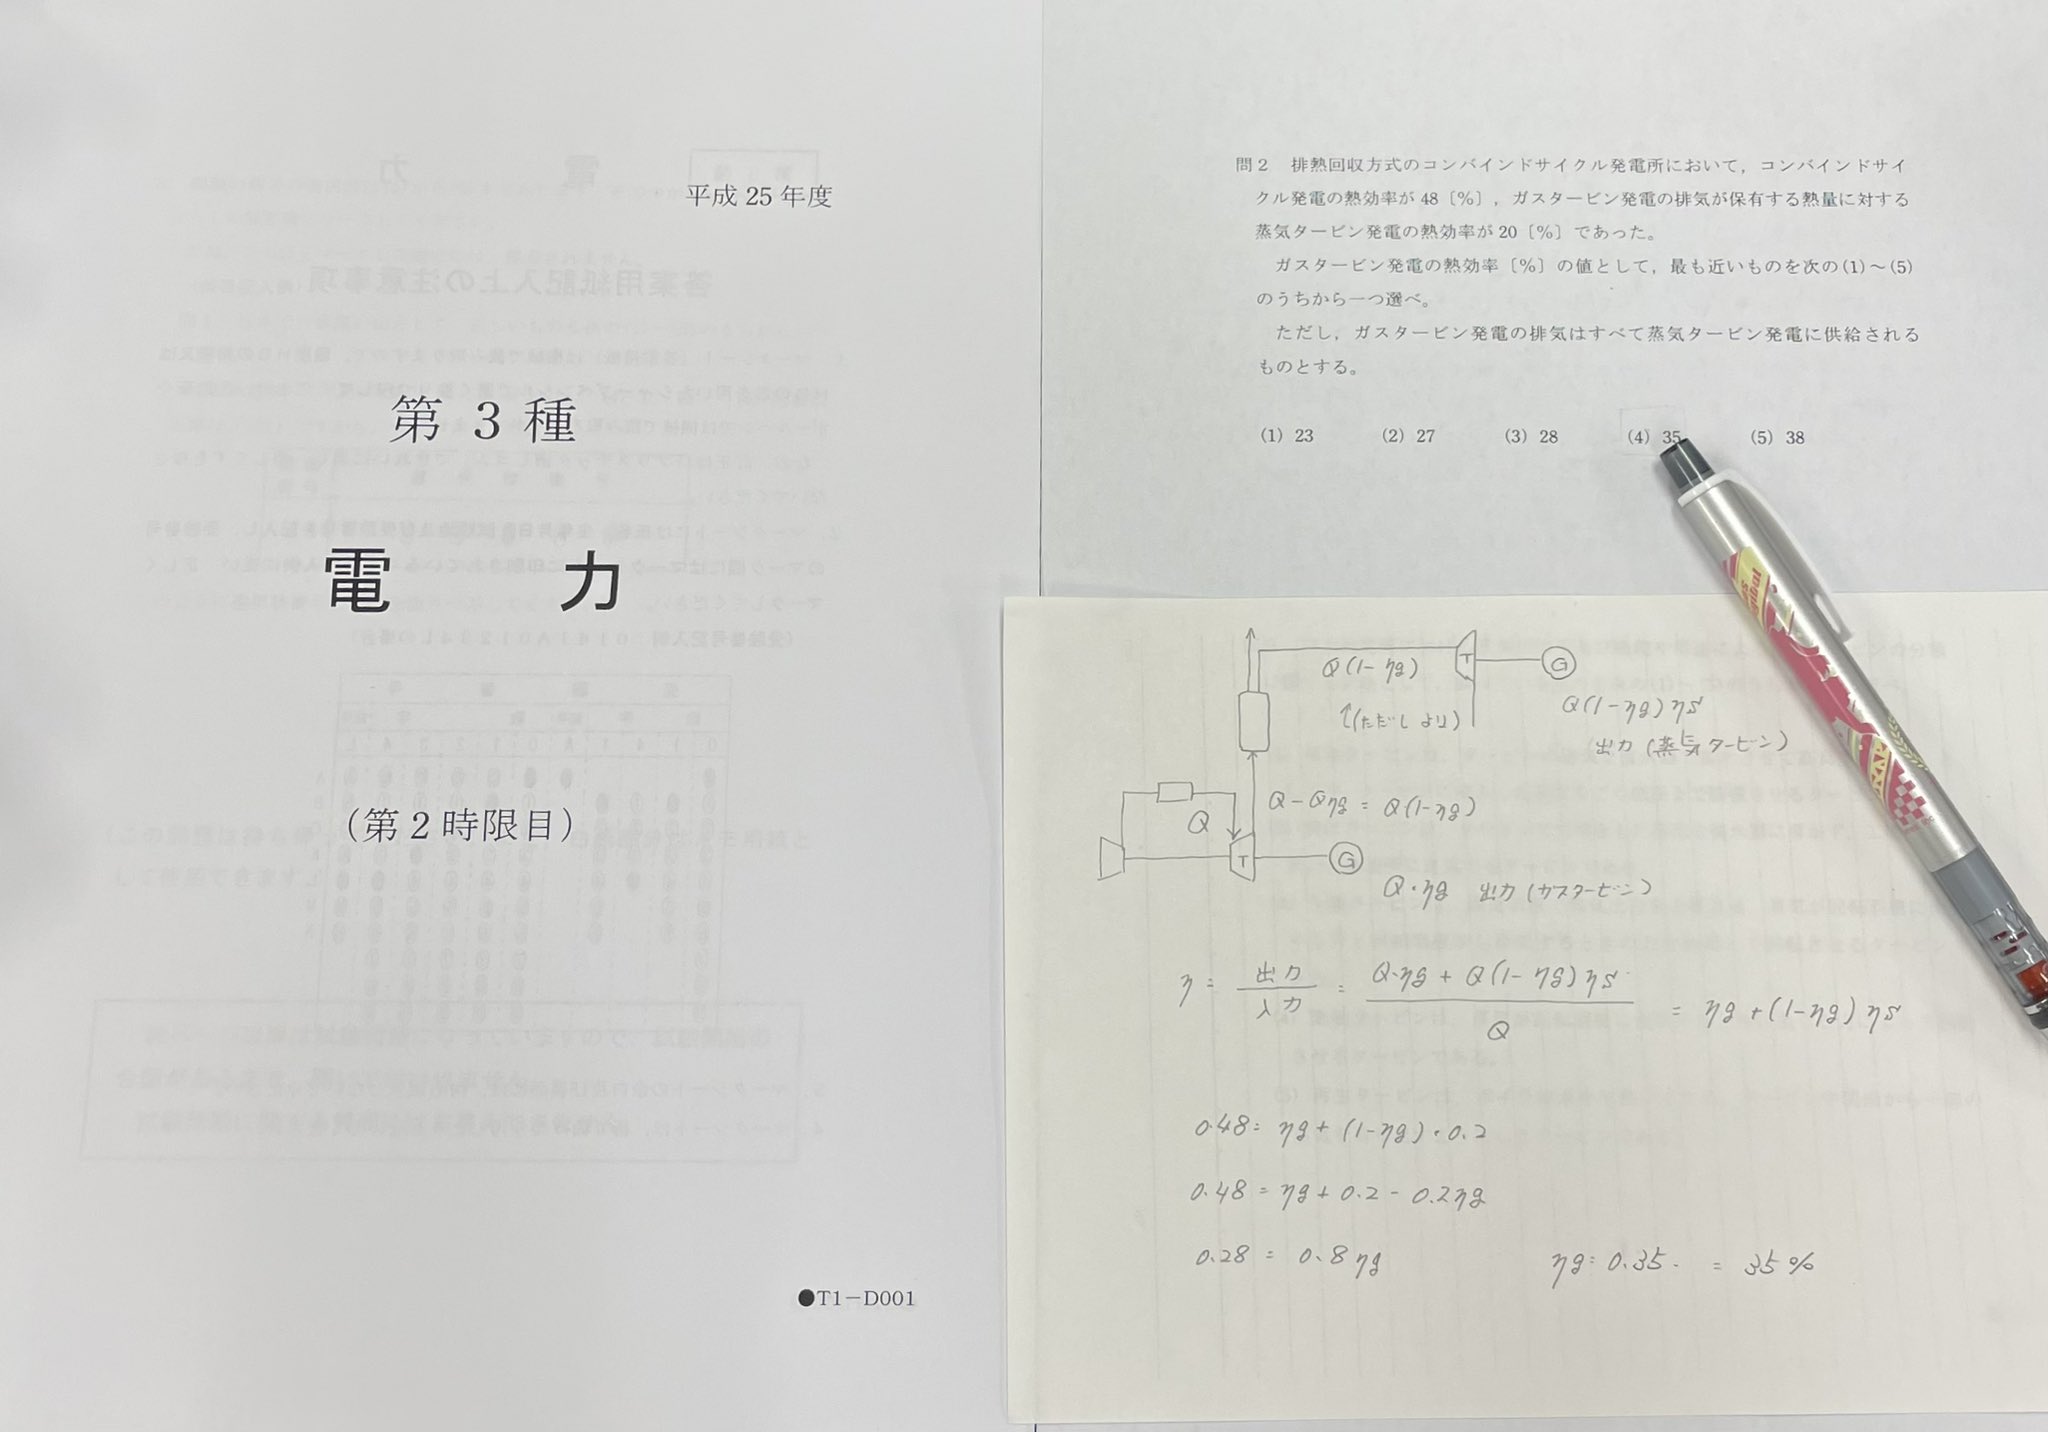 平成 25 年度
第 3 種
電 力
(第 2 時限目)
●T1-D001
問2 排熱回収方式のコンバインドサイクル発電所において,コンバインドサイ
クル発電の熱効率が 48〔%〕,ガスタービン発電の排気が保有する熱量に対する
蒸気タービン発電の熱効率が 20〔%〕であった。
ガスタービン発電の熱効率〔%〕の値として,最も近いものを次の(1)~(5)
のうちから一つ選べ。
ただし,ガスタービン発電の排気はすべて蒸気タービン発電に供給される
ものとする。
(1) 23 (2) 27 (3) 28 (4) 35 (5) 38
Q(1-ηg) T G
↑(ただしより) Q(1-ηg)ηs
出力(蒸気タービン)
Q-Qηg = Q(1-ηg)
Q
T G
Q・ηg 出力(ガスタービン)
η = 出力/入力 = Q・ηg + Q(1-ηg)ηs / Q = ηg + (1-ηg)ηs
0.48 = ηg + (1-ηg)・0.2
0.48 = ηg + 0.2 - 0.2ηg
0.28 = 0.8ηg ηg = 0.35 = 35%